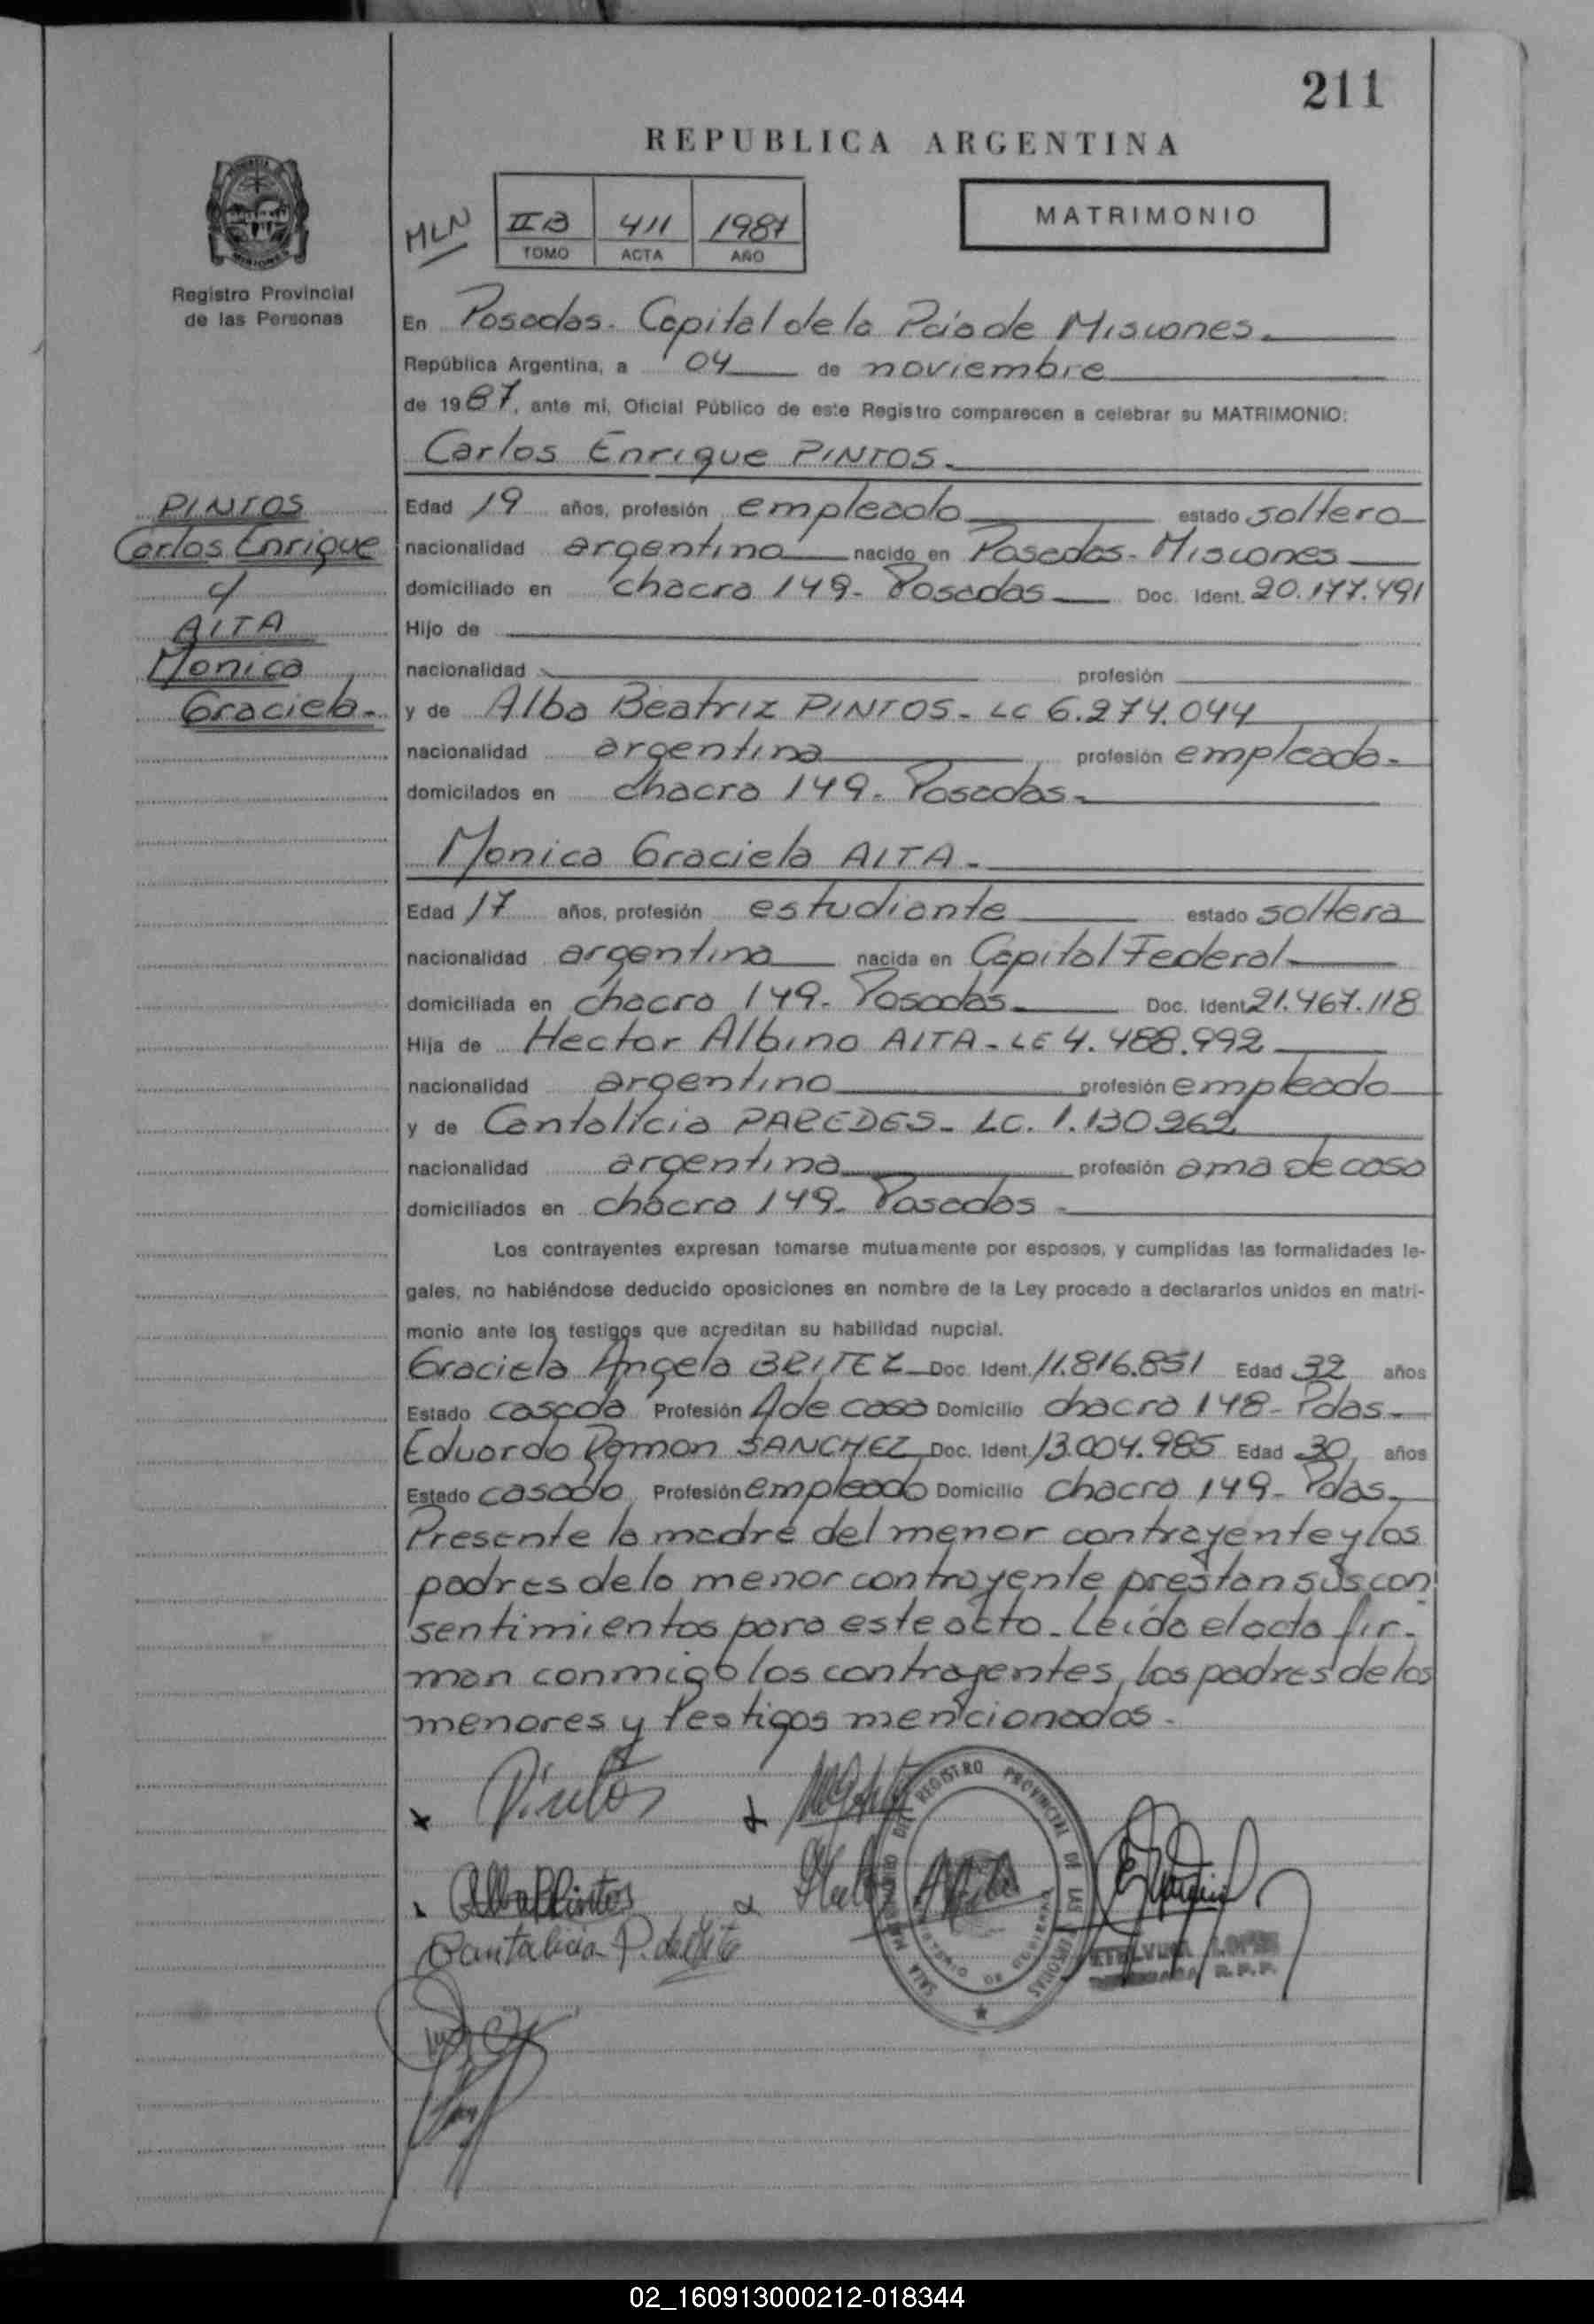 211
REPUBLICA ARGENTINA
MLN
II B 411 1987
TOMO ACTA AÑO
MATRIMONIO
Registro Provincial
de las Personas
En Posadas. Capital de la Pcia de Misiones.
República Argentina, a 04 de noviembre
de 1987, ante mí, Oficial Público de este Registro comparecen a celebrar su MATRIMONIO:
Carlos Enrique PINTOS.
PINTOS
Carlos Enrique
c/
AITA
Monica
Graciela.
Edad 19 años, profesión empleado estado soltero
nacionalidad argentina nacido en Posadas - Misiones
domiciliado en chacra 149. Posadas Doc. Ident. 20.177.491
Hijo de
nacionalidad profesión
y de Alba Beatriz PINTOS - LC 6.274.044
nacionalidad argentina profesión empleada.
domicilados en chacra 149. Posadas.
Monica Graciela AITA.
Edad 17 años, profesión estudiante estado soltera
nacionalidad argentina nacida en Capital Federal
domiciliada en chacra 149. Posadas Doc. Ident. 21.467.118
Hija de Hector Albino AITA - LE 4.488.992
nacionalidad argentino profesión empleado
y de Cantalicia PAREDES - LC. 1.130.262
nacionalidad argentina profesión ama de casa
domiciliados en chacra 149. Posadas
Los contrayentes expresan tomarse mutuamente por esposos, y cumplidas las formalidades le-
gales, no habiéndose deducido oposiciones en nombre de la Ley procedo a declararlos unidos en matri-
monio ante los testigos que acreditan su habilidad nupcial.
Graciela Angela BRITEZ Doc. Ident. 11.816.851 Edad 32 años
Estado casada Profesión A de casa Domicilio chacra 148 - Pdas.
Eduardo Ramon SANCHEZ Doc. Ident. 13.004.985 Edad 30 años
Estado casado Profesión empleado Domicilio chacra 149 - Pdas.
Presente la madre del menor contrayente y los
padres de la menor contrayente prestan sus con
sentimientos para este acto. Leída el acta fir-
man conmigo los contrayentes, los padres de los
menores y testigos mencionados.
Pintos
Alba B Pintos
Cantalicia P. de Aita
REGISTRO PROVINCIAL DE LAS PERSONAS
MINISTERIO DE GOBIERNO
ETELVINA LOPEZ
R.P.P.
02_160913000212-018344